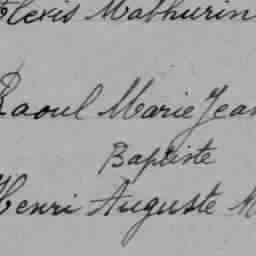 Alexis Mathurin
Raoul Marie Jean
Baptiste
Henri Auguste M